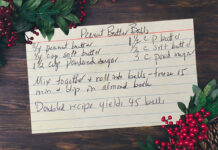 Peanut Butter Balls
3/4 peanut butter 1 1/2 c p butter
1/4 cup soft butter 1/2 c soft butter
1 1/2 cup powdered sugar 3 c powd sugar
Mix together & roll into balls - freeze 15
min & dip in almond bark
Doubled recipe yields 45 balls